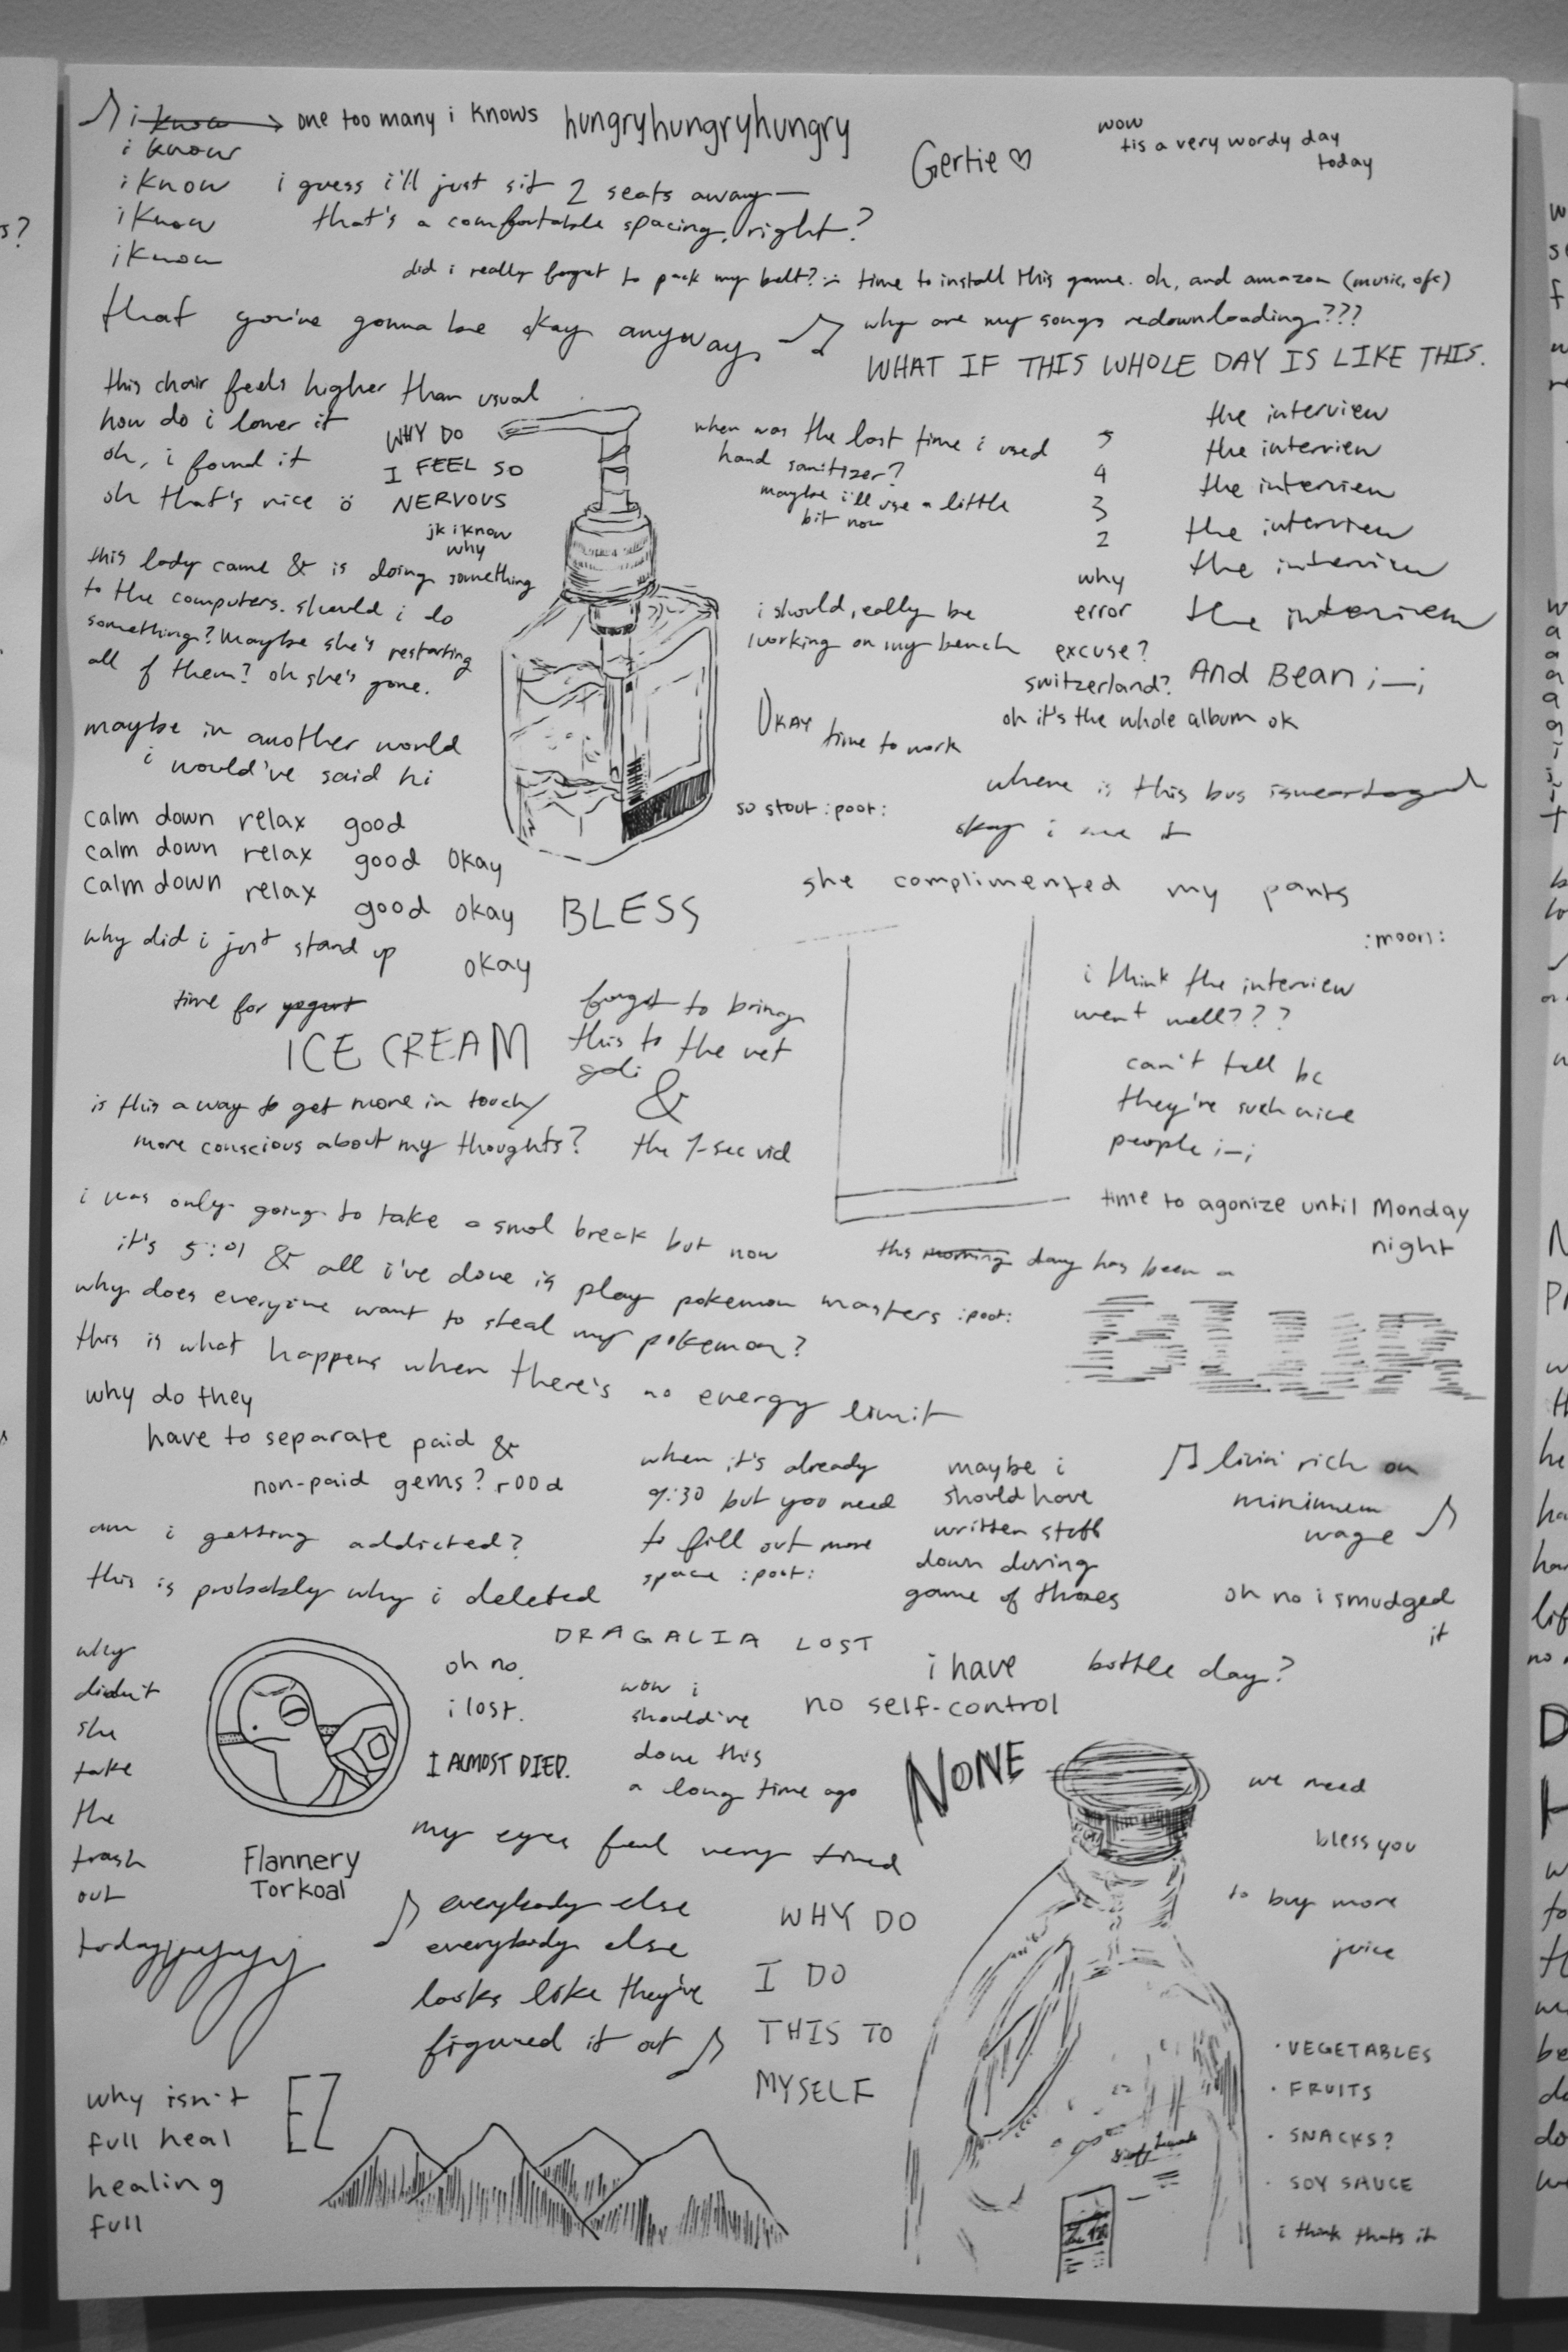 ♪ i know → one too many i knows
hungryhungryhungry
Gertie ♡
wow
tis a very wordy day
today
i know
i know
i know
i know
i guess i'll just sit 2 seats away—
that's a comfortable spacing, right?
did i really forget to pack my belt?
time to install this game. oh, and amazon (music, ofc)
that you're gonna be okay anyway ♫
why are my songs redownloading???
WHAT IF THIS WHOLE DAY IS LIKE THIS.
this chair feels higher than usual
how do i lower it
oh, i found it
oh that's nice ö
WHY DO
I FEEL SO
NERVOUS
jk i know
why
when was the last time i used
hand sanitizer?
maybe i'll use a little
bit now
5
4
3
2
why
error
excuse?
switzerland?
oh it's the whole album ok
the interview
the interview
the interview
the interview
the interview
the interview
AND BEAN ;_;
this lady came & is doing something
to the computers. should i do
something? Maybe she's restarting
all of them? oh she's gone.
i should really be
working on my bench
OKAY
time to work
maybe in another world
i would've said hi
so stout :poot:
where is this bus
okay i see it
calm down relax good
calm down relax good okay
calm down relax good okay
okay
BLESS
why did i just stand up
she complimented my pants
:moon:
time for yogurt
ICE CREAM
forgot to bring
this to the vet
&
the 1-sec vid
i think the interview
went well???
can't tell bc
they're such nice
people ;_;
is this a way to get more in touch/
more conscious about my thoughts?
time to agonize until Monday
night
i was only going to take a smol break but now
it's 5:01 & all i've done is play pokemon masters :poot:
the morning day has been a
BLUR
why does everyone want to steal my pokemon?
this is what happens when there's no energy limit
why do they
have to separate paid &
non-paid gems? r00d
when it's already
9:30 but you need
to fill out more
space :poot:
maybe i
should have
written stuff
down during
game of thrones
♫ livin' rich on
minimum
wage ♪
am i getting addicted?
this is probably why i deleted
DRAGALIA LOST
oh no i smudged
it
why
didn't
she
take
the
trash
out
todayyyyyyy
Flannery
Torkoal
oh no.
i lost.
I ALMOST DIED.
wow i
should've
done this
a long time ago
i have
no self-control
NONE
bottle day?
my eyes feel very tired
we need
bless you
to buy more
juice
♪ everybody else
everybody else
looks like they've
figured it out ♪
WHY DO
I DO
THIS TO
MYSELF
· VEGETABLES
· FRUITS
· SNACKS?
· SOY SAUCE
i think that's it
why isn't
full heal
healing
full
EZ